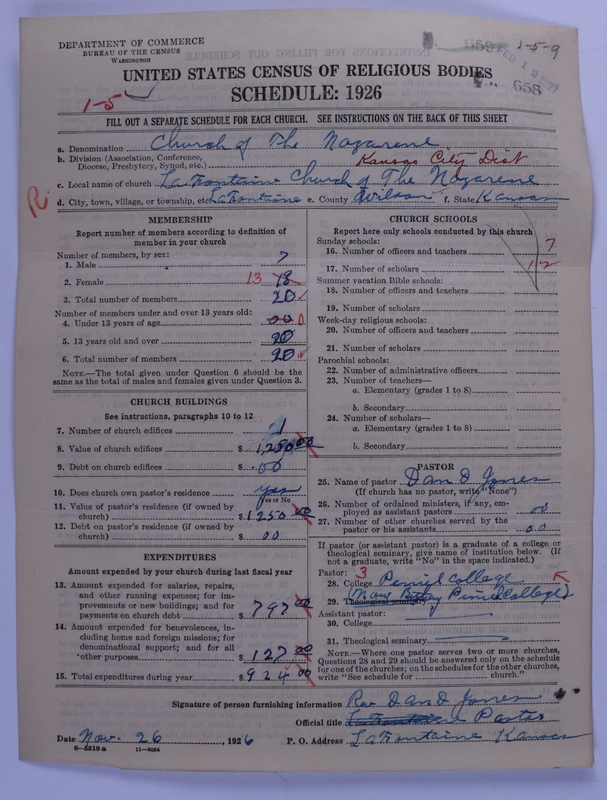 DEPARTMENT OF COMMERCE
BUREAU OF THE CENSUS
WASHINGTON
1-5-9
658
UNITED STATES CENSUS OF RELIGIOUS BODIES
SCHEDULE: 1926
1-5
FILL OUT A SEPARATE SCHEDULE FOR EACH CHURCH. SEE INSTRUCTIONS ON THE BACK OF THIS SHEET
a. Denomination Church of The Nazarene
b. Division (Association, Conference, Diocese, Presbytery, Synod, etc.) Kansas City Dist
c. Local name of church LaFontaine Church of The Nazarene
d. City, town, village, or township, etc. LaFontaine e. County Wilson f. State Kansas
R.
MEMBERSHIP
Report number of members according to definition of
member in your church
Number of members, by sex:
1. Male 7
2. Female 13 18
3. Total number of members 20
Number of members under and over 13 years old:
4. Under 13 years of age 00 0
5. 13 years old and over 20
6. Total number of members 20
NOTE.—The total given under Question 6 should be
same as the total of males and females given under Question 3.
CHURCH BUILDINGS
See instructions, paragraphs 10 to 12
7. Number of church edifices 1
8. Value of church edifices $ 1,250 00
9. Debt on church edifices $ 00
10. Does church own pastor's residence yes
Yes or No
11. Value of pastor's residence (if owned by
church) $ 1250 00
12. Debt on pastor's residence (if owned by
church) $ 00
EXPENDITURES
Amount expended by your church during last fiscal year
13. Amount expended for salaries, repairs,
and other running expenses; for im-
provements or new buildings; and for
payments on church debt $ 797 00
14. Amount expended for benevolences, in-
cluding home and foreign missions; for
denominational support; and for all
other purposes $ 127 00
15. Total expenditures during year $ 924 00
CHURCH SCHOOLS
Report here only schools conducted by this church
Sunday schools:
16. Number of officers and teachers 7
17. Number of scholars
Summer vacation Bible schools:
18. Number of officers and teachers
19. Number of scholars
Week-day religious schools:
20. Number of officers and teachers
21. Number of scholars
Parochial schools:
22. Number of administrative officers
23. Number of teachers—
a. Elementary (grades 1 to 8)
b. Secondary
24. Number of scholars—
a. Elementary (grades 1 to 8)
b. Secondary
PASTOR
25. Name of pastor Dan D Jones
(If church has no pastor, write "None")
26. Number of ordained ministers, if any, em-
ployed as assistant pastors 00
27. Number of other churches served by the
pastor or his assistants 00
If pastor (or assistant pastor) is a graduate of a college or
theological seminary, give name of institution below. (If
not a graduate, write "No" in the space indicated.)
Pastor: 3
28. College Peniel College
29. Theological seminary Peniel College
Assistant pastor:
30. College
31. Theological seminary
NOTE.—Where one pastor serves two or more churches,
Questions 28 and 29 should be answered only on the schedule
for one of the churches; on the schedules for the other churches,
write "See schedule for church."
Signature of person furnishing information Rev Dan D Jones
Official title Pastor
Date Nov. 26, 1926 P. O. Address LaFontaine Kansas
8-5518a 11-9054